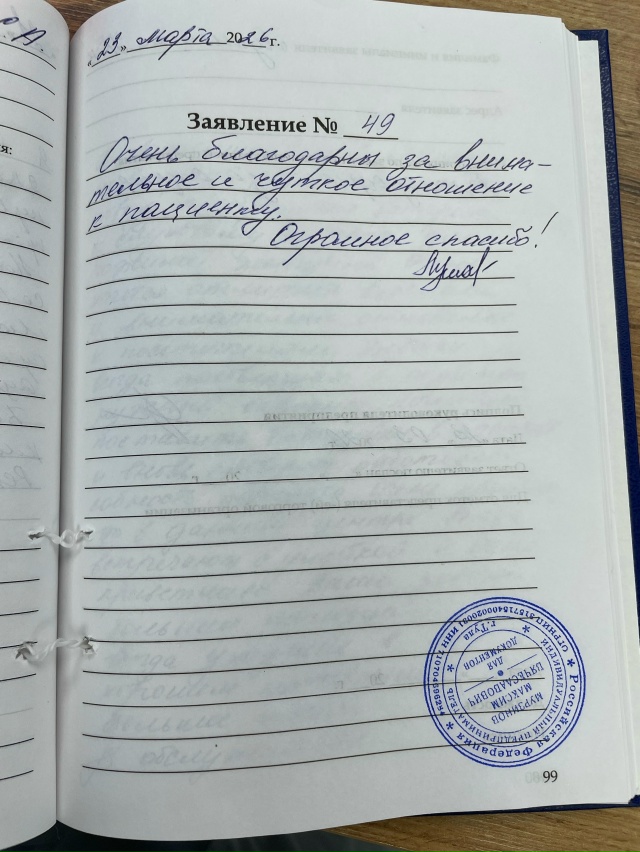 «23» марта 2026 г.
Заявление № 49
Очень благодарны за внима-
тельное и чуткое отношение
к пациенту.
Огромное спасибо!
Российская Федерация
г. Тула
ИНДИВИДУАЛЬНЫЙ ПРЕДПРИНИМАТЕЛЬ
МУРЗИНОВ
МАКСИМ
ВЯЧЕСЛАВОВИЧ
ДЛЯ
ДОКУМЕНТОВ
99